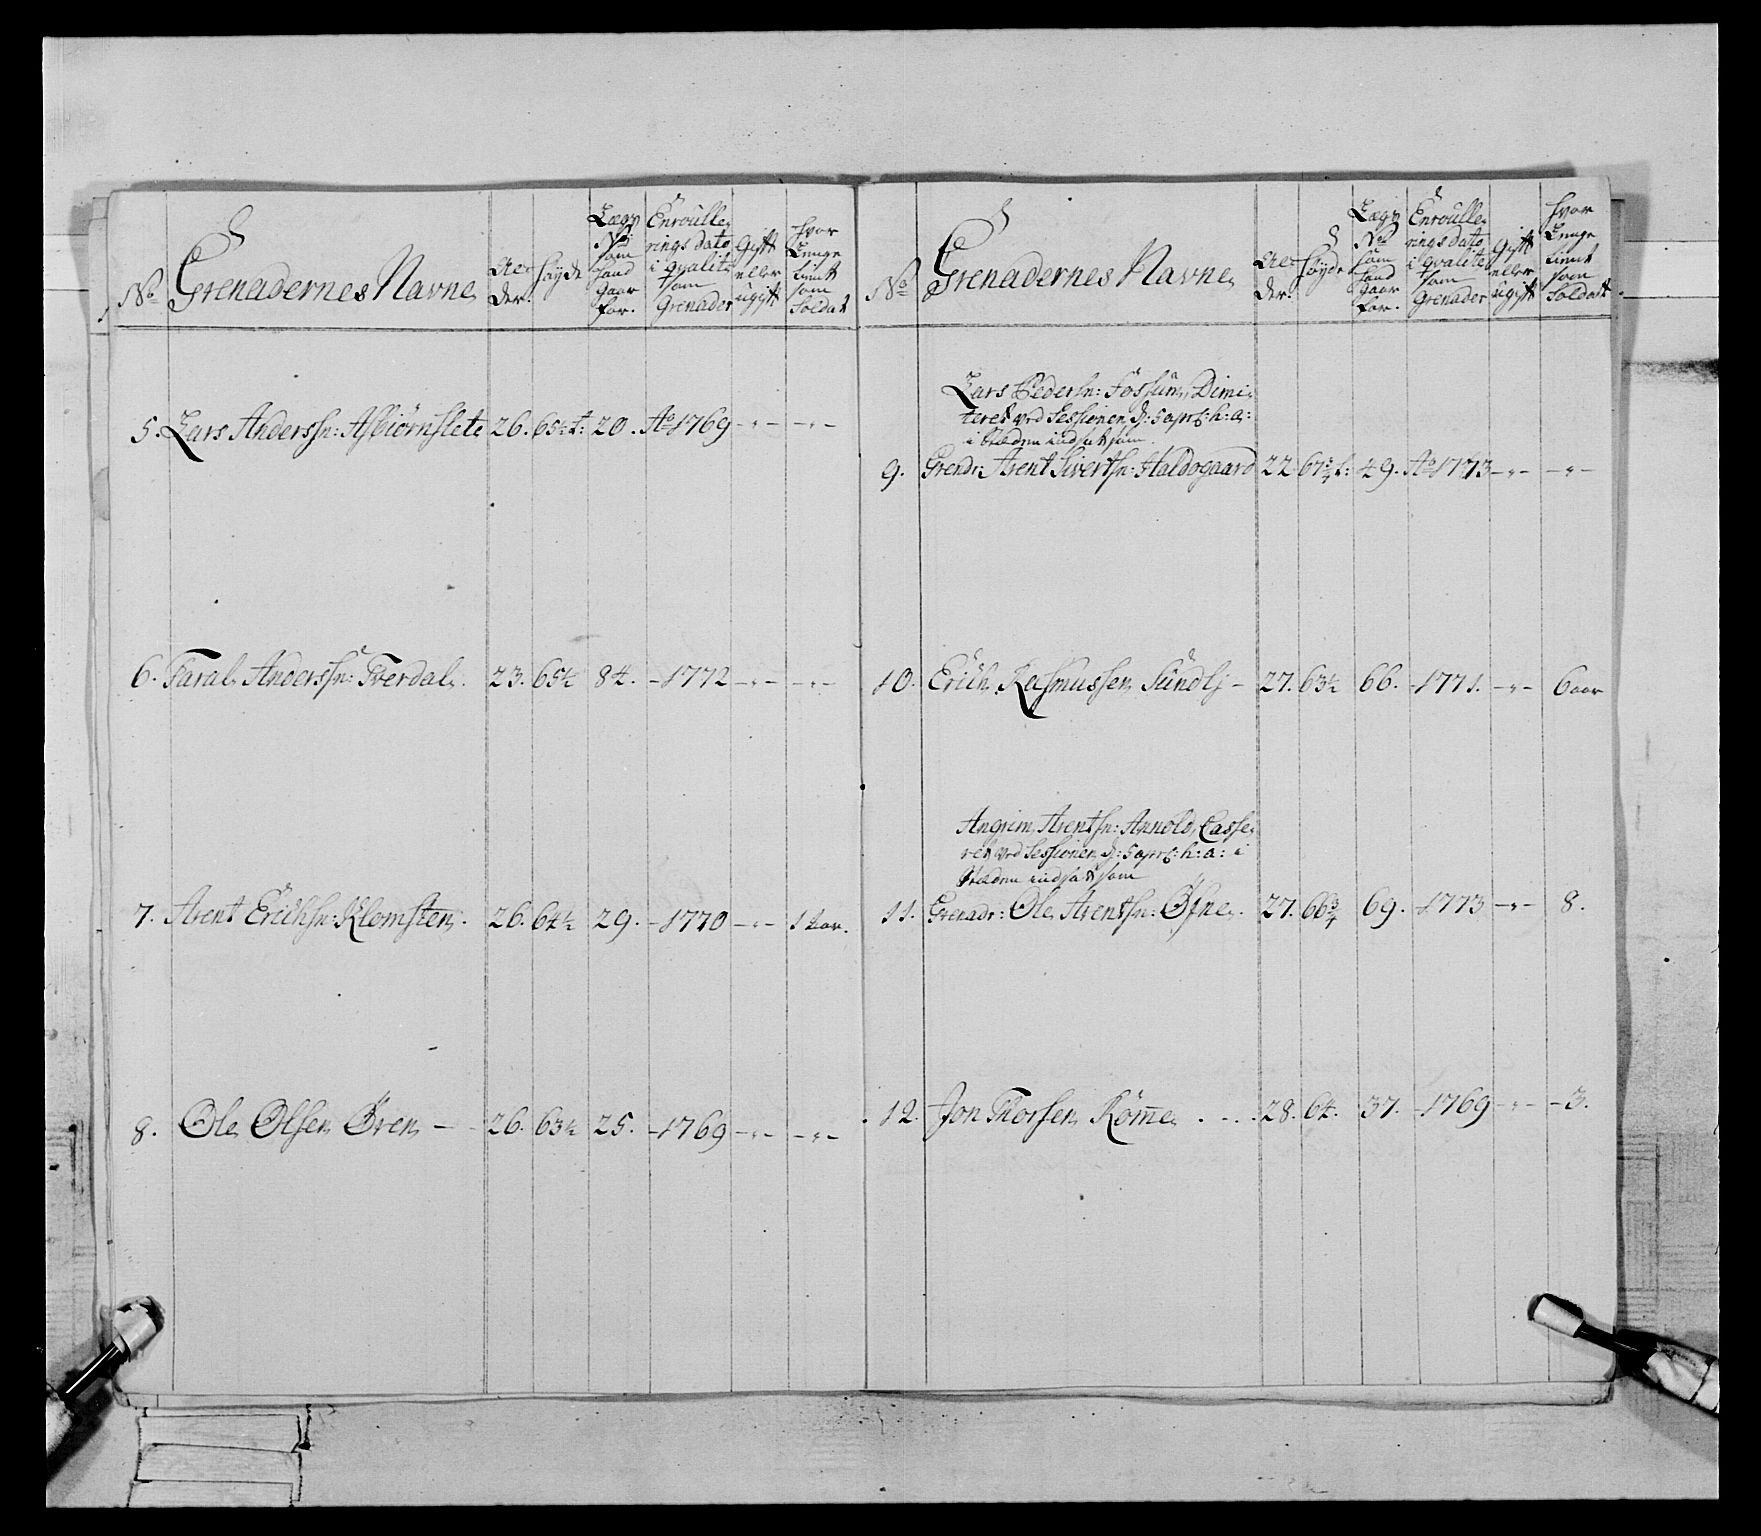 No Grenadernes Navne Alder. Høyde Lægs No som hand gaar for. Enroullerings dato i qvalite som Grenader Gift eller ugift hvor Lenge tient som Soldat
5. Lars Anderssn: Asbiørnslett 26. 65½ t: 20. Ao 1769 -"- -"-
6. Taral Anderssn: Tverdal. 23. 65½ 84. -1772 -"- -"-
7. Arent Erichsn: Klomsten. 26. 64½ 29. -1770 -"- 1 aar.
8. Ole Olsen Ören - 26. 63½ 25. -1769 -"- -"-
No Grenadernes Navne Alder. Høyde Lægs No som hand gaar for. Enroullerings dato i qvalite som Grenader Gift eller ugift hvor Lenge tient som Soldat
Lars Pedersn: Fossum, Dimi-
teret ved Sessionen d: 5 apr: h: a:
i Stæden indsat som
9. Grendr: Arent Sivertsn: Haldogaard 22. 67¾ t: 49. Ao 1773 -"- -"-
10. Erich Rasmussen Sundli - 27. 63½ 66. -1771. -"- 6 aar
Angrim Arentsn: Arnold, Casse-
ret ved Sessionen d: 5 apr: h: a: i
Stæden indsat som
11. Grenadr: Ole Arentsn: Öfne. 27. 66¾ 69. -1773 -"- 8.
12. Jon Thorsen Röm̅e . . . 28. 64. 37. -1769 -"- -3.